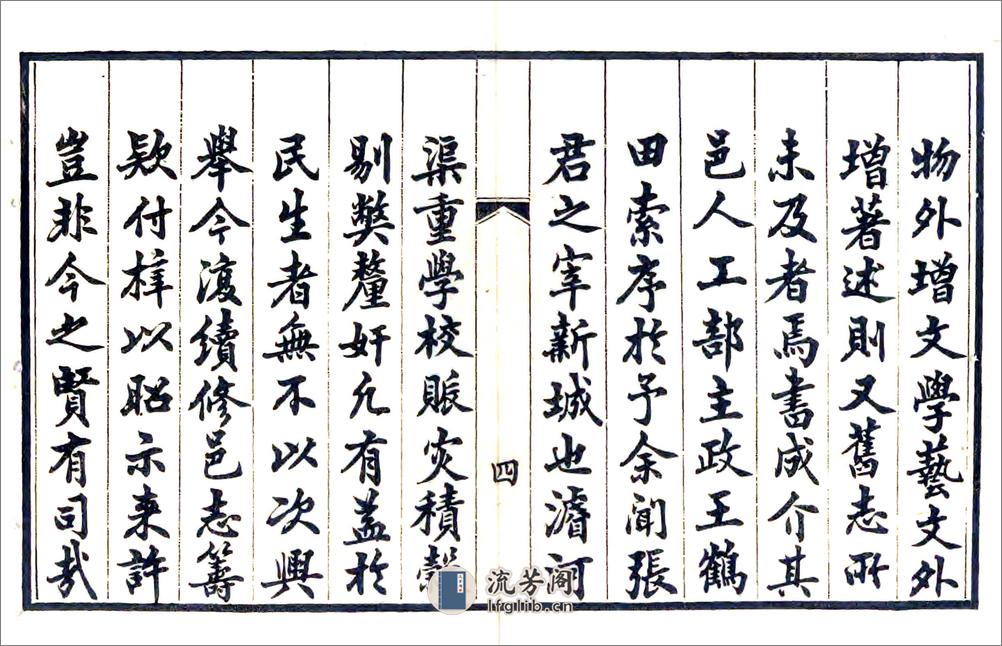 物外增文學藝文外
增著述則又舊志所
未及者焉書成介其
邑人工部主政王鶴
田索序於予余聞張
君之宰新城也濬河
四
渠重學校賑灾積穀
剔獘釐奸凢有益於
民生者無不以次興
舉今復續修邑志籌
欵付梓以昭示来許
豈非今之賢有司㢤
流芳阁
lfglib.cn